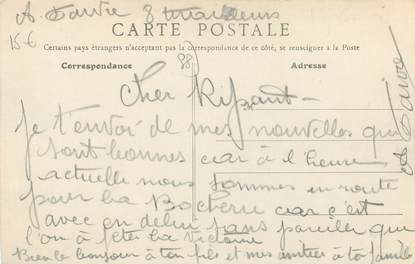 A. Favre 8 tirailleurs
15 €
CARTE POSTALE
Certains pays étrangers n'acceptant pas la correspondance de ce côté, se renseigner à la Poste
Correspondance
(88)
Adresse
Cher
Je t'envoi de mes nouvelles qui
sont bonnes car à l'heure
actuelle nous sommes en route
pour la car c'est
avec en délire sans pareille que
l'on a fêter la victoire
Bien le bonjour à ton fils et mes amitiés à ta famille
A. Favre